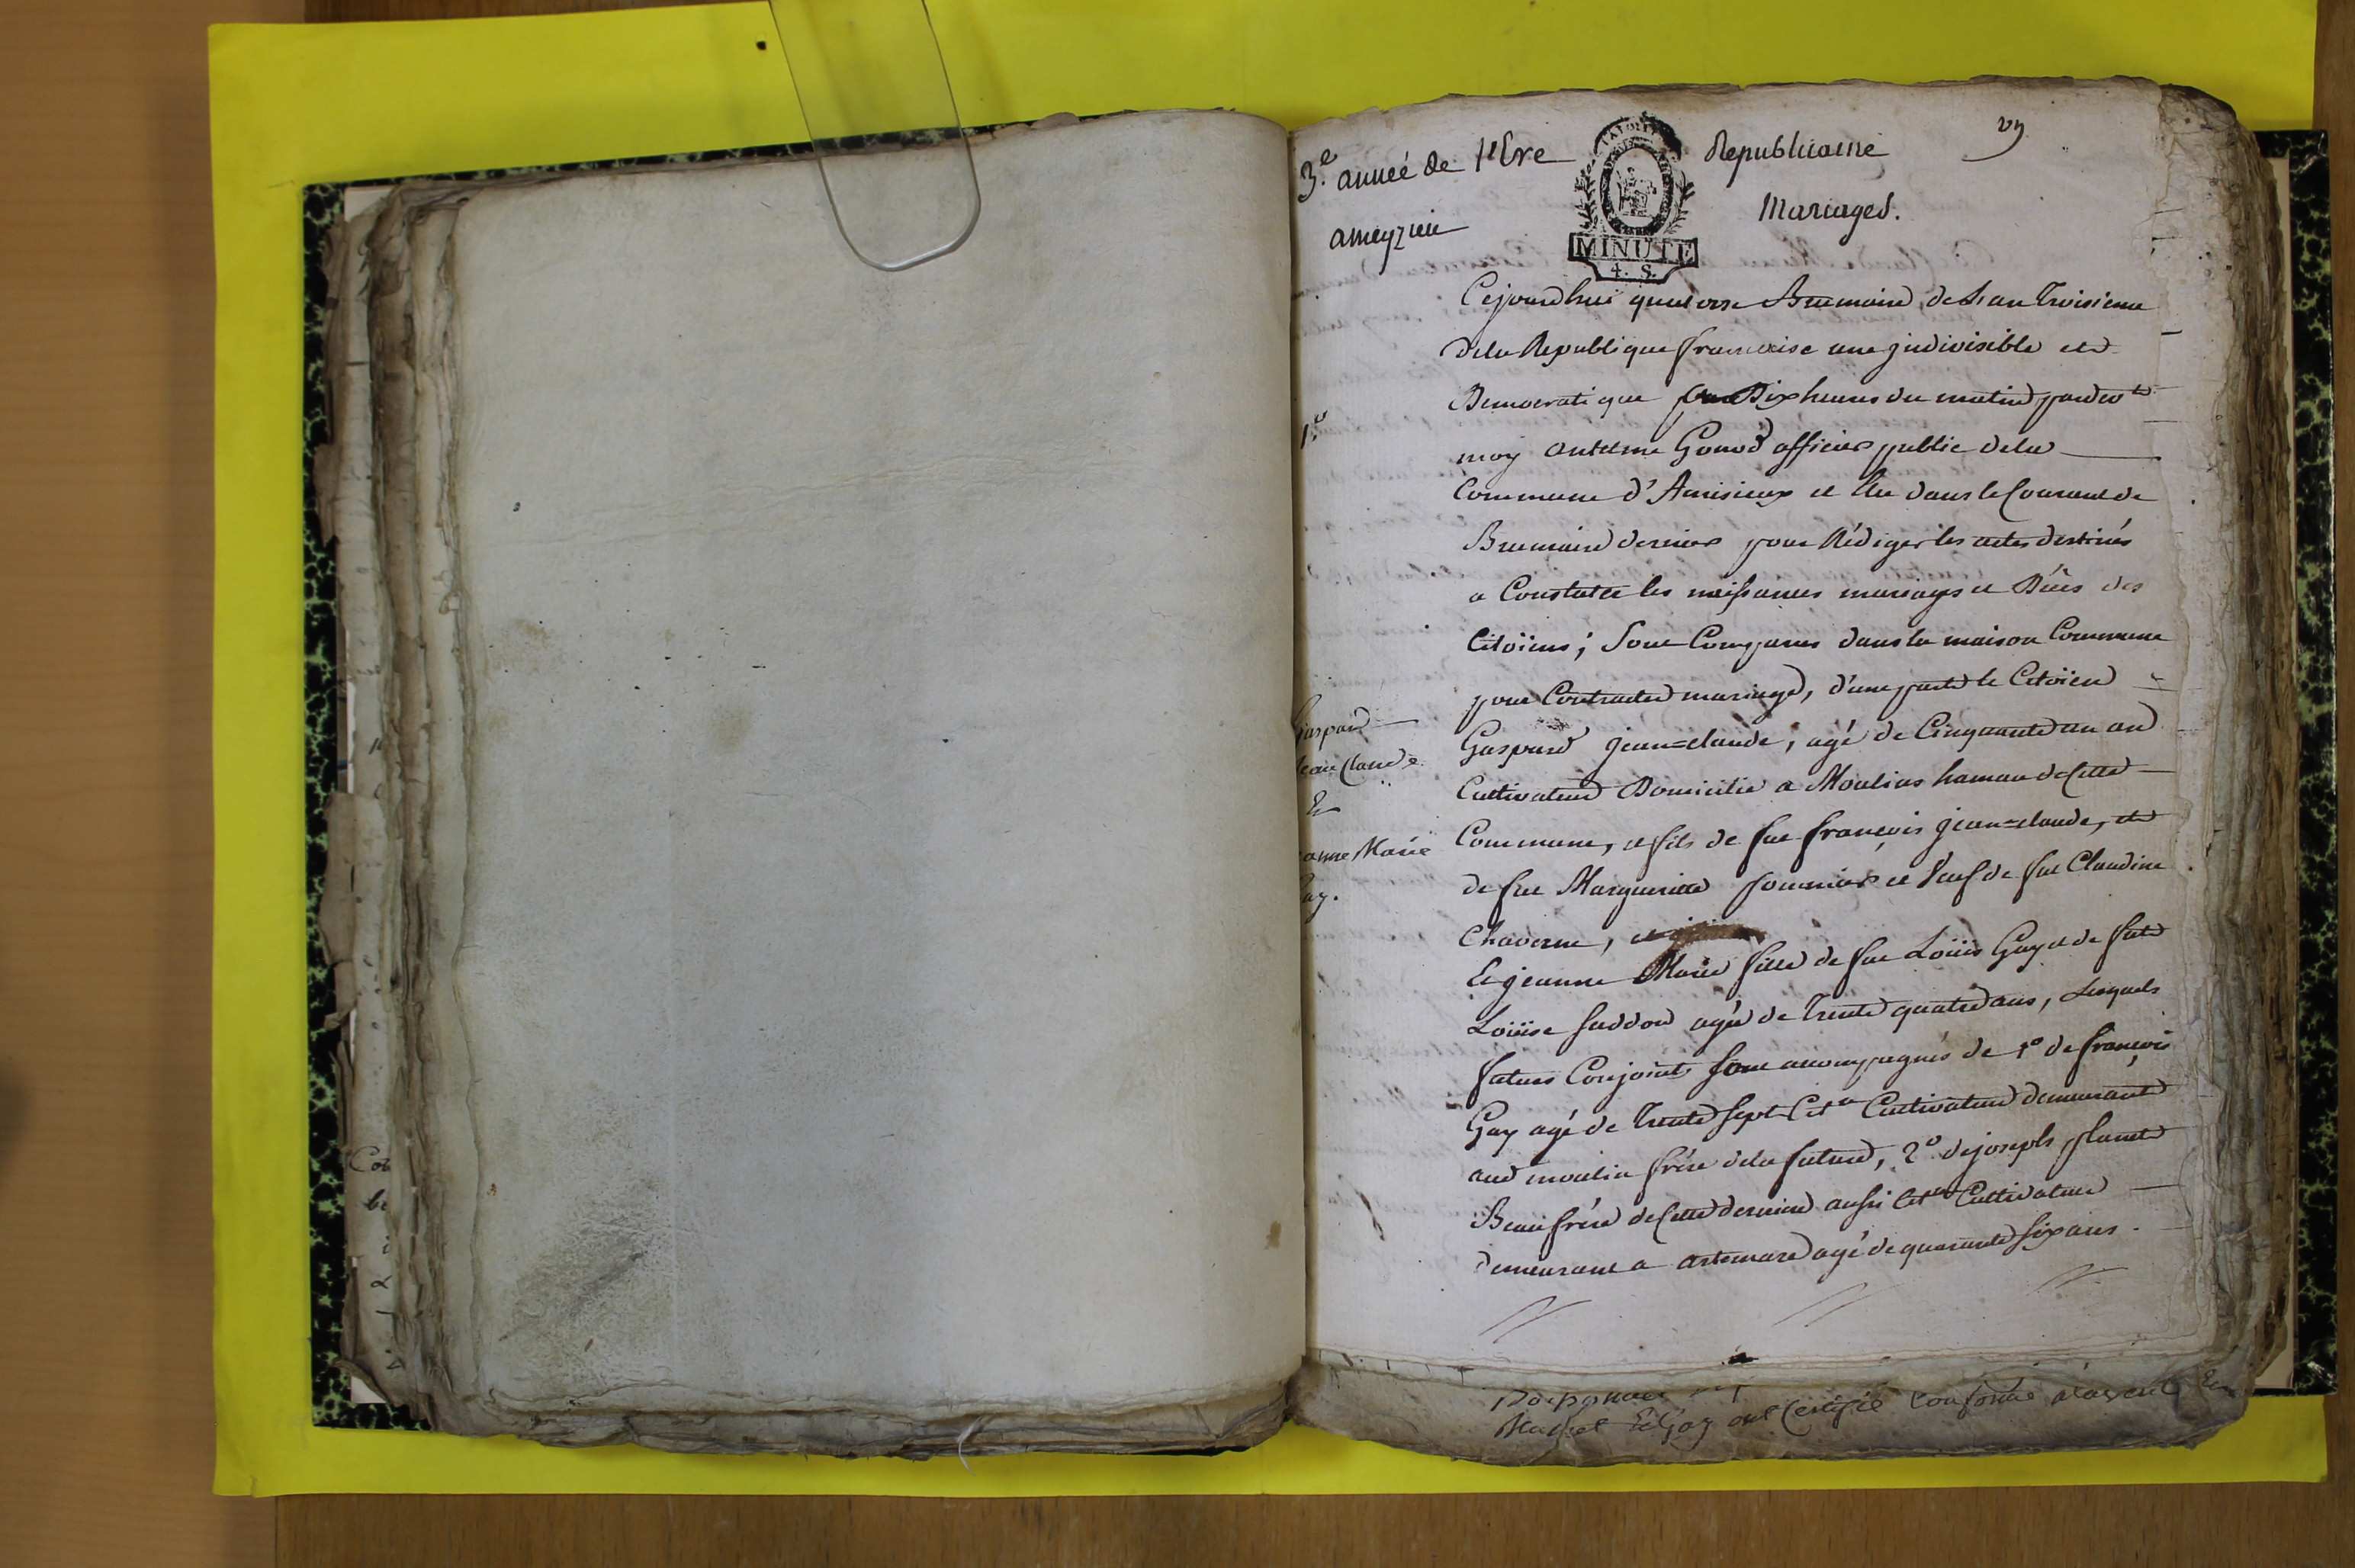 3.e année de l'Ere Republicaine
ameyzieu Mariages.
MINUTE
4. S.
Cejourdhui quatorze Brumaire de L'an Troisieme
dela Republique francoise une jndivisible et
Democratique Dix heures du matin pardevt
1.er
moy Antelme Gonod officier public dela
Commune d'Amisieux et Elu dans le Courant de
Brumaire dernier pour Rédiger les actes destinés
a Constater les naissances mariages et Décès des
Citoïens; Sont Comparus dans la maison Commune
pour Contracter mariage, d'une part le Citoïen
Gaspard jean=claude, agé de Cinquante un an
Cultivateur Domicilié a Moulins hamau de Cette
Commune, et fils de feu françois jean=claude, et
de feue Marguerite fournier et Veuf de feue Claudine
Chaverne,
Et jeanne Marie fille de feu Loüis Gay et de feue
Loüise Suddon agée de Trente quatre ans, Lesquels
futurs Conjoints sont accompagnés de 1° de françois
Gay agé de Trente sept Citn Cultivateur demeurant
aud moulin frére dela future, 2° de joseph planet
Beaufrére de Cette derniere aussi Citn Cultivateur
demeurant a artemare agé de quarante six ans.
Gaspard
Jean Claude
Et
Jeanne Marie
Gay.
Et Gay ont Certifié Conforme